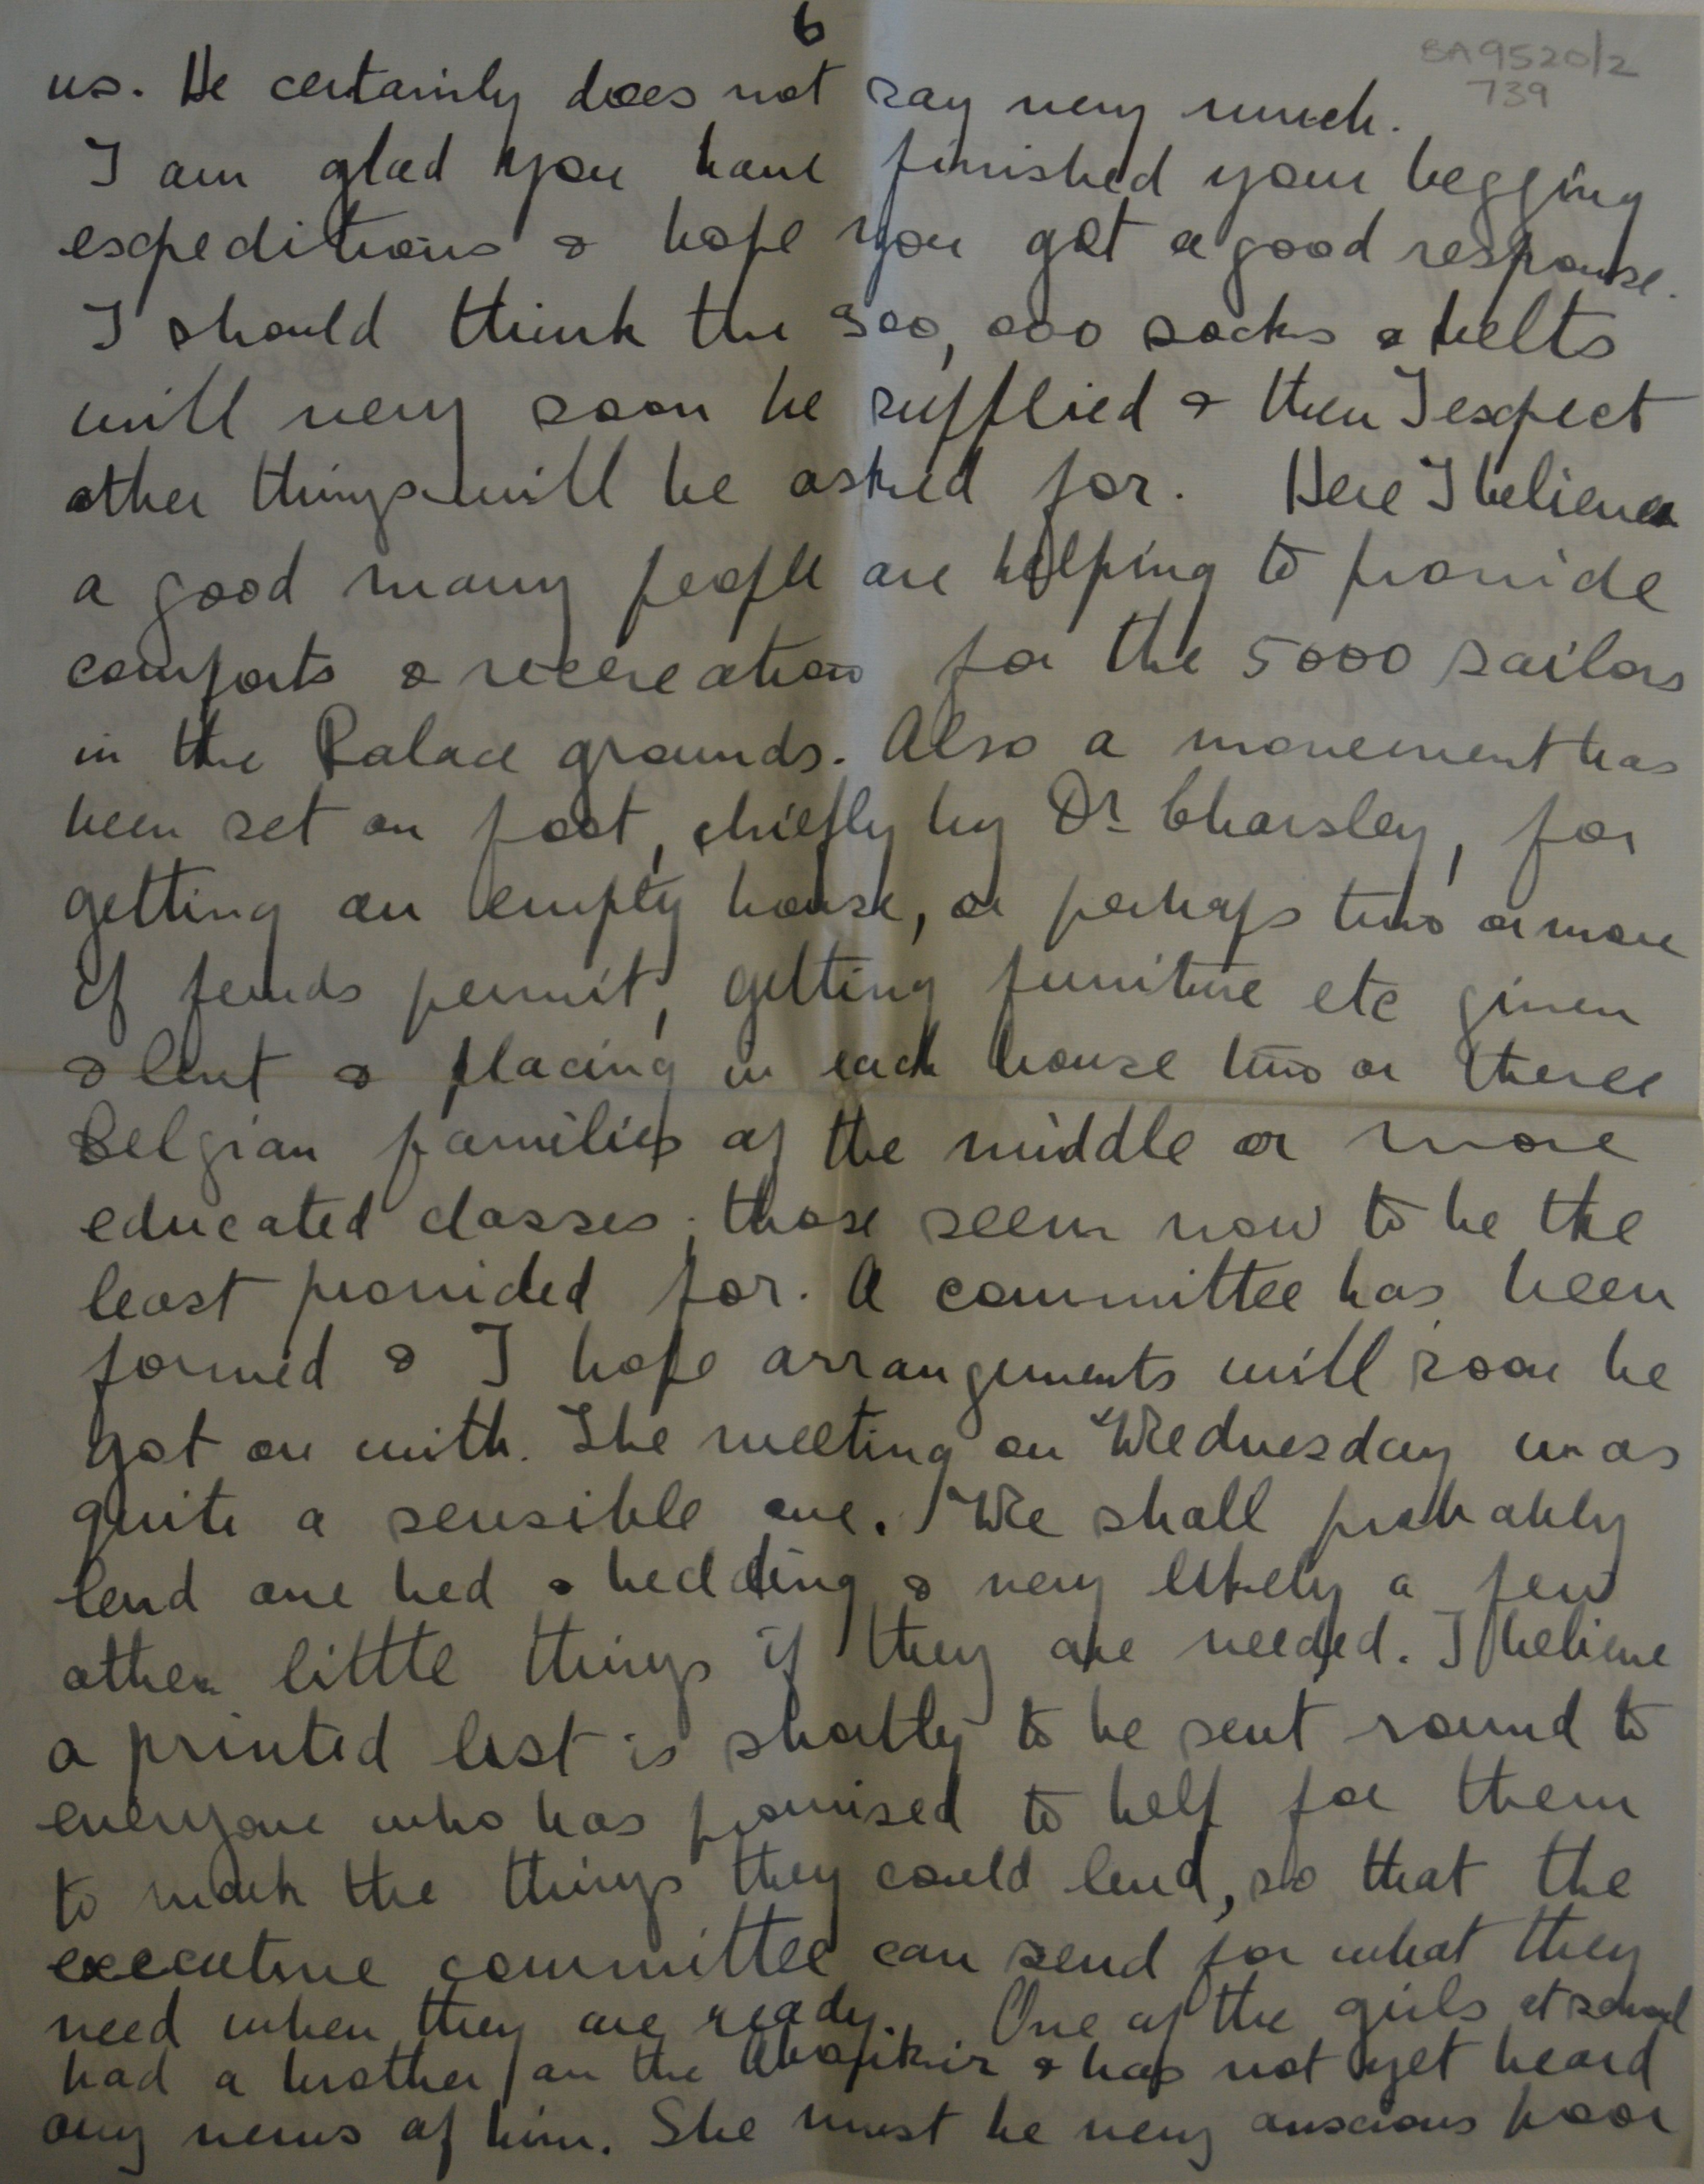 6
BA9520/2
739
us. He certainly does not say very much.
I am glad you have finished your begging
expeditions & hope you got a good response.
I should think the 300,000 socks & belts
will very soon be supplied & then I expect
other things will be asked for. Here I believe
a good many people are helping to provide
comforts & recreation for the 5000 sailors
in the Palace grounds. Also a movement has
been set on foot, chiefly by Dr Charsley, for
getting an empty house, or perhaps two or more
if funds permit, getting furniture etc given
& lent & placing in each house two or three
Belgian families of the middle or more
educated classes; those seem now to be the
least provided for. A committee has been
formed & I hope arrangements will soon be
got on with. The meeting on Wednesday was
quite a sensible one. We shall probably
lend one bed & bedding & very likely a few
other little things if they are needed. I believe
a printed list is shortly to be sent round to
everyone who has promised to help for them
to mark the things they could lend, so that the
executive committee can send for what they
need when they are ready. One of the girls at school
had a brother on the Aboukir & has not yet heard
any news of him. She must be very anxious poor